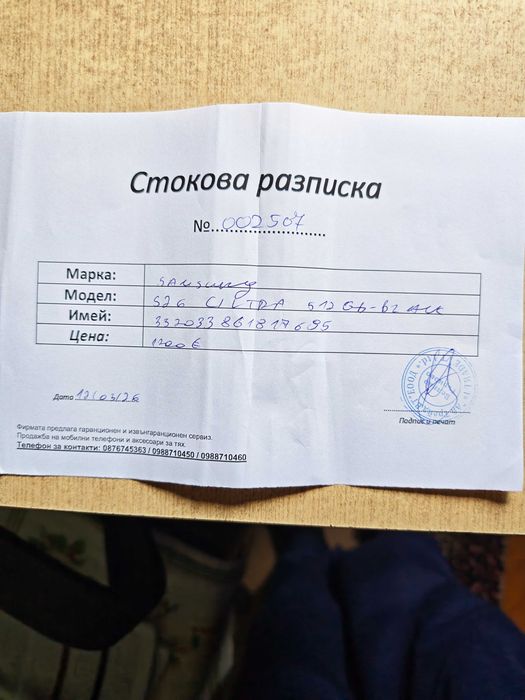 Стокова разписка
№ 002507
Марка: SAMSUNG
Модел: S26 ULTRA 512Gb-BLACK
Имей: 352033861817695
Цена: 1200€
Дата 12/03/26
Подпис и печат
Фирмата предлага гаранционен и извънгаранционен сервиз.
Продажба на мобилни телефони и аксесоари за тях.
Телефон за контакти: 0876745363 / 0988710450 / 0988710460